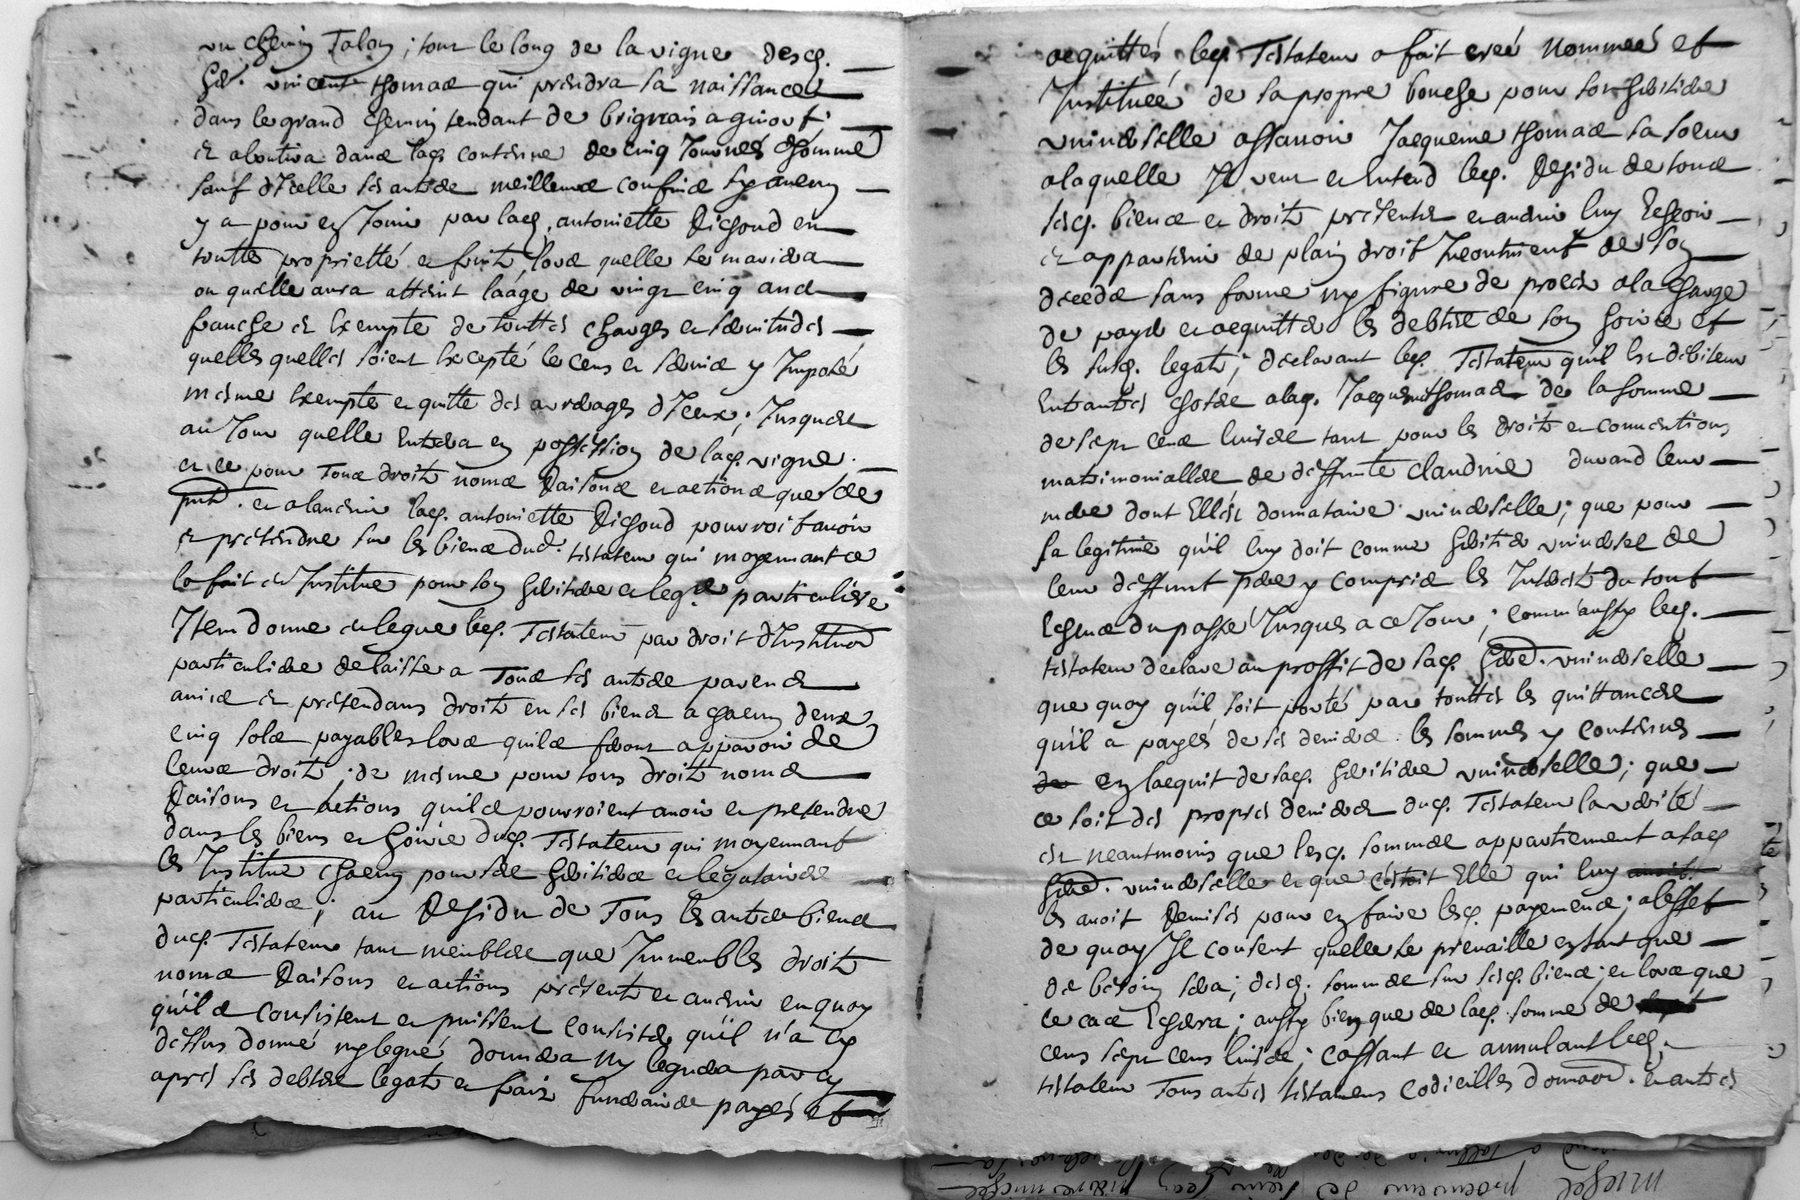 un chemin Talon ; tout le long de la vigne desd.
hers. vincent thomas qui prendra sa naissance
dans le grand chemin tendant de brignais a givort
et aboutira dans lad. contenue de cinq Journés d'homme
sauf d'Icelle ses autres meilleurs confins sy aucuns
y a pour en Jouir par lad. antoniette Richoud en
toutte proprietté et fruits, lors quelle se mariera
ou quelle aura atteint laage de vingt cinq ans
franche et Exempte de touttes charges et servitudes
quelles quelles soient Excepté le cens et servis y Imposé
mesme Exempte et quitte des arrérages d'Iceux ; Jusques
au Jour quelle Entrera en possession de lad. vigne.
et ce pour tous droits noms Raisons et actions que des
pnt. et a lavenir lad. antoniette Richoud pourroit avoir
et prétendre sur les biens dud. testateur qui moyenant ce
la fait et Institue pour son héritière et legre. particulière
Item donne et legue led. Testateur par droit d'Instituon
particulière delaisse a Tous ses autres parens
amis et prétendans droits en ses biens a chacun deux
cinq sols payables lors quils feront apparoir de
leurs droits ; de mesme pour tous droits noms
Raisons et actions quils pourroient avoir et pretendre
dans les biens et hoirie dud. Testateur qui moyennant
les Institue chacun pour ses héritiers et légataires
particuliers ; au Residu de Tous les autres biens
dud. Testateur tant meubles que Immeubles droits
noms Raisons et actions présents et avenir en quoy
quils consistent et puissent consister qu'il n'a cy
dessus donné ny legué donnera ny leguera par cy
apres ses debtes legats et frais funeraires payés et
acquittés, led. Testateur a fait creé nommeé et
Instituéé de sa propre bouche pour son héritière
universelle assavoir Jacqueme thomas sa soeur
a laquelle Il veut et Entend led. Residu de tous
sesd. biens et droits présents et avenir luy Echeoir
et appartenir de plain droit Incontinent de son
deceds sans forme ny figure de proces a la charge
de payer et acquitter les debtes de son hoirie et
les susd. legats ; declarant led. Testateur qu'il est débiteur
Entrautres choses a lad. Jacqueme thomas de la somme
de sept cens livres tant pour les droits et conventions
matrimonialles de deffunte claudine durand leur
mere dont Elle est donnataire universelle ; que pour
sa legitime qu'il luy doit comme héritier universel de
leur deffunt père y compris les Intérests du tout
Echeus du passé Jusques a ce Jour ; comm'aussy led.
testateur déclare au proffit de sad. hére. universelle
que quoy qu'il soit porté par touttes les quittances
qu'il a payés de ses deniers les sommes y contenues
de en lacquit de sad. héritière universelle ; que
ce soit des propres deniers dud. Testateur la vérité
est neantmoins que lesd. sommes appartiennent a lad.
hére. universelle et que c'estoit Elle qui luy avoit
les avoit Remises pour en faire lesd. payemens ; a leffet
de quoy Il consent quelle se prevaille en tant que
de bésoin séra ; desd. sommes sur sesd. biens ; et lors que
le cas Echera ; aussy bien que de lad. somme de
cens sept cens livres ; cassant et annulant led.
testateur Tous autres testamens codicilles donaons. et autres